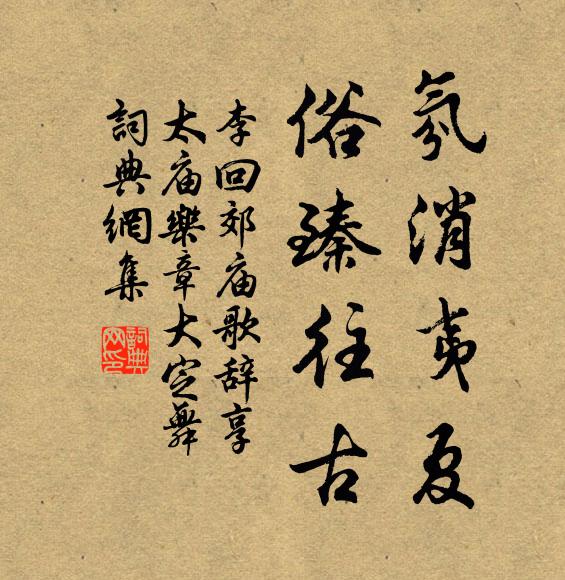 氛消夷夏
俗臻往古
李回郊庙歌辞享
太庙樂章大定舞
詞典網集
詞典
网印